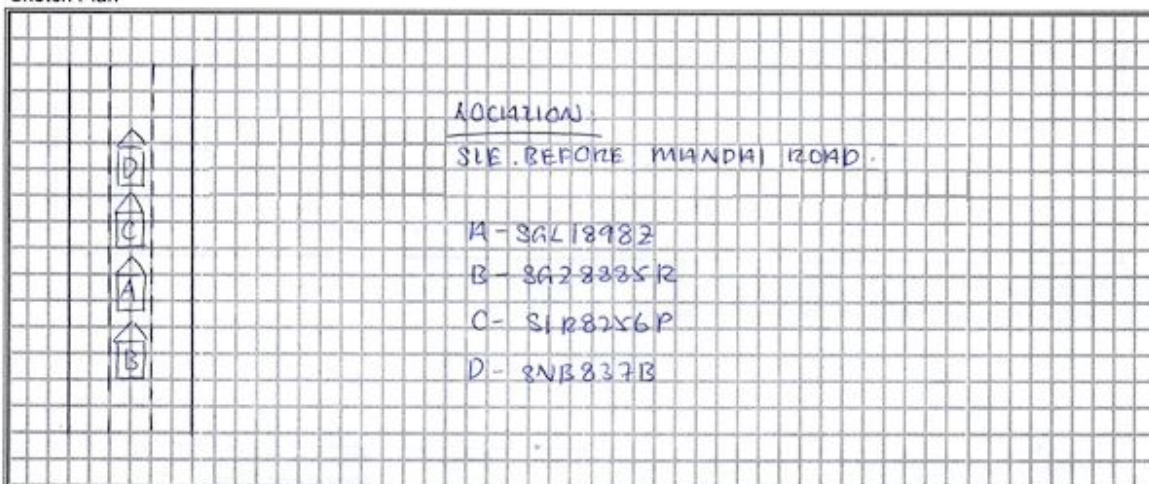 D
C
A
B
LOCATION.
SLE. BEFORE MANDAI ROAD.
A - SGL1898Z
B - SGZ8885R
C - SLR8256P
D - SNB837B